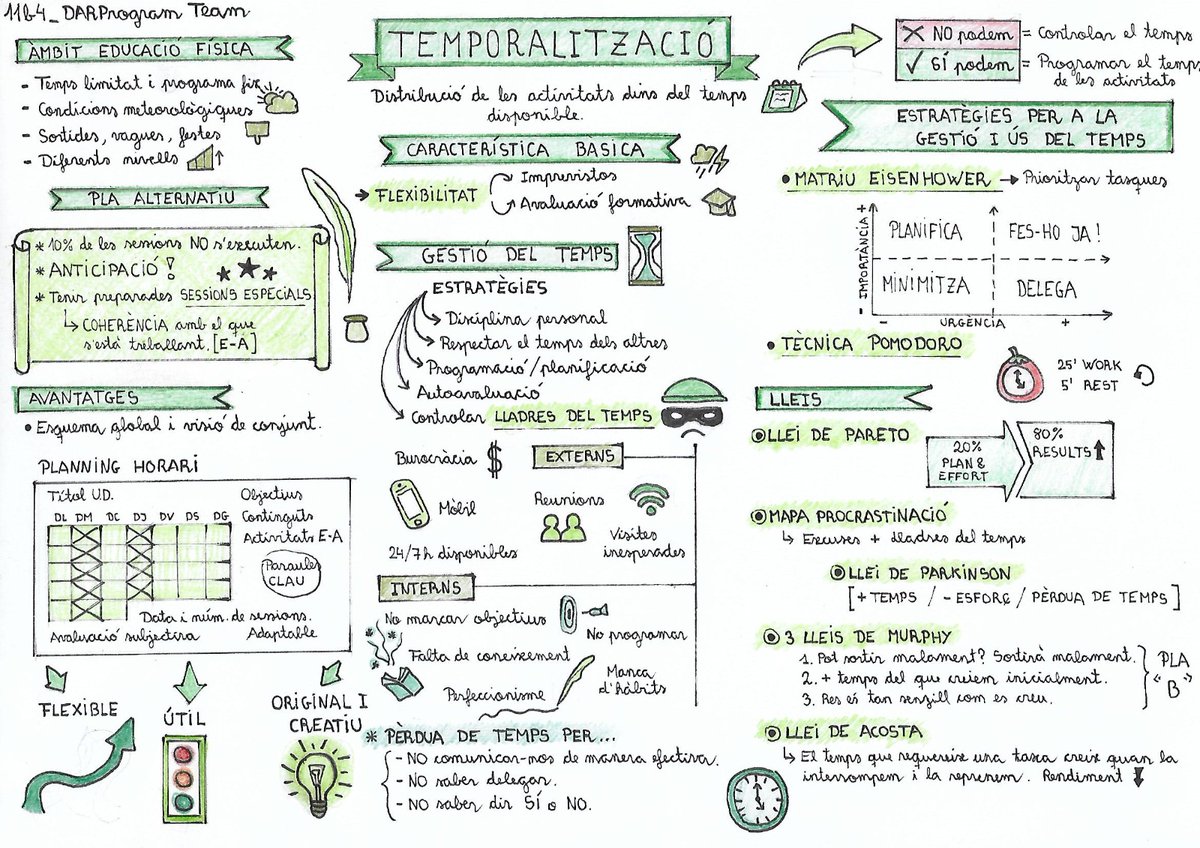 11b4_DARProgram Team
ÀMBIT EDUCACIÓ FÍSICA
- Temps limitat i programa fix
- Condicions meteorològiques
- Sortides, vagues, festes
- Diferents nivells
PLA ALTERNATIU
* 10% de les sessions NO s'executen.
* ANTICIPACIÓ!
* Tenir preparades SESSIONS ESPECIALS
↳ COHERÈNCIA amb el que
s'està treballant. [E-A]
AVANTATGES
• Esquema global i visió de conjunt.
PLANNING HORARI
Títol U.D.
DL DM DC DJ DV DS DG
Objectius
Continguts
Activitats E-A
Paraules
CLAU
Data i núm. de sessions.
Avaluació subjectiva
Adaptable
FLEXIBLE
ÚTIL
ORIGINAL I
CREATIU
TEMPORALITZACIÓ
Distribució de les activitats dins del temps
disponible.
CARACTERÍSTICA BASICA
→ FLEXIBILITAT
Imprevistos
Avaluació formativa
GESTIÓ DEL TEMPS
ESTRATÈGIES
Disciplina personal
Respectar el temps dels altres
Programació/planificació
Autoavaluació
Controlar LLADRES DEL TEMPS
EXTERNS
Burocràcia $
Mòbil
Reunions
24/7h disponibles
Visites
inesperades
INTERNS
No marcar objectius
No programar
Falta de coneixement
Perfeccionisme
Manca
d'hàbits
* PÈRDUA DE TEMPS PER...
- NO comunicar-nos de manera efectiva.
- NO saber delegar.
- NO saber dir SÍ o NO.
✗ NO podem = Controlar el temps
✓ SÍ podem = Programar el temps
de les activitats
ESTRATÈGIES PER A LA
GESTIÓ I ÚS DEL TEMPS
• MATRIU EISENHOWER → Prioritzar tasques
- IMPORTÀNCIA +
PLANIFICA
FES-HO JA!
MINIMITZA
DELEGA
- URGÈNCIA +
• TÈCNICA POMODORO
25' WORK
5' REST
LLEIS
LLEI DE PARETO
20%
PLAN &
EFFORT
80%
RESULTS
MAPA PROCRASTINACIÓ
↳ Excuses + lladres del temps
LLEI DE PARKINSON
[+ TEMPS / - ESFORÇ / PÈRDUA DE TEMPS]
3 LLEIS DE MURPHY
1. Pot sortir malament? Sortirà malament.
2. + temps del que creiem inicialment.
3. Res és tan senzill com es creu.
PLA
"B"
LLEI DE ACOSTA
↳ El temps que requereix una tasca creix quan la
interrompem i la reprenem. Rendiment ↓